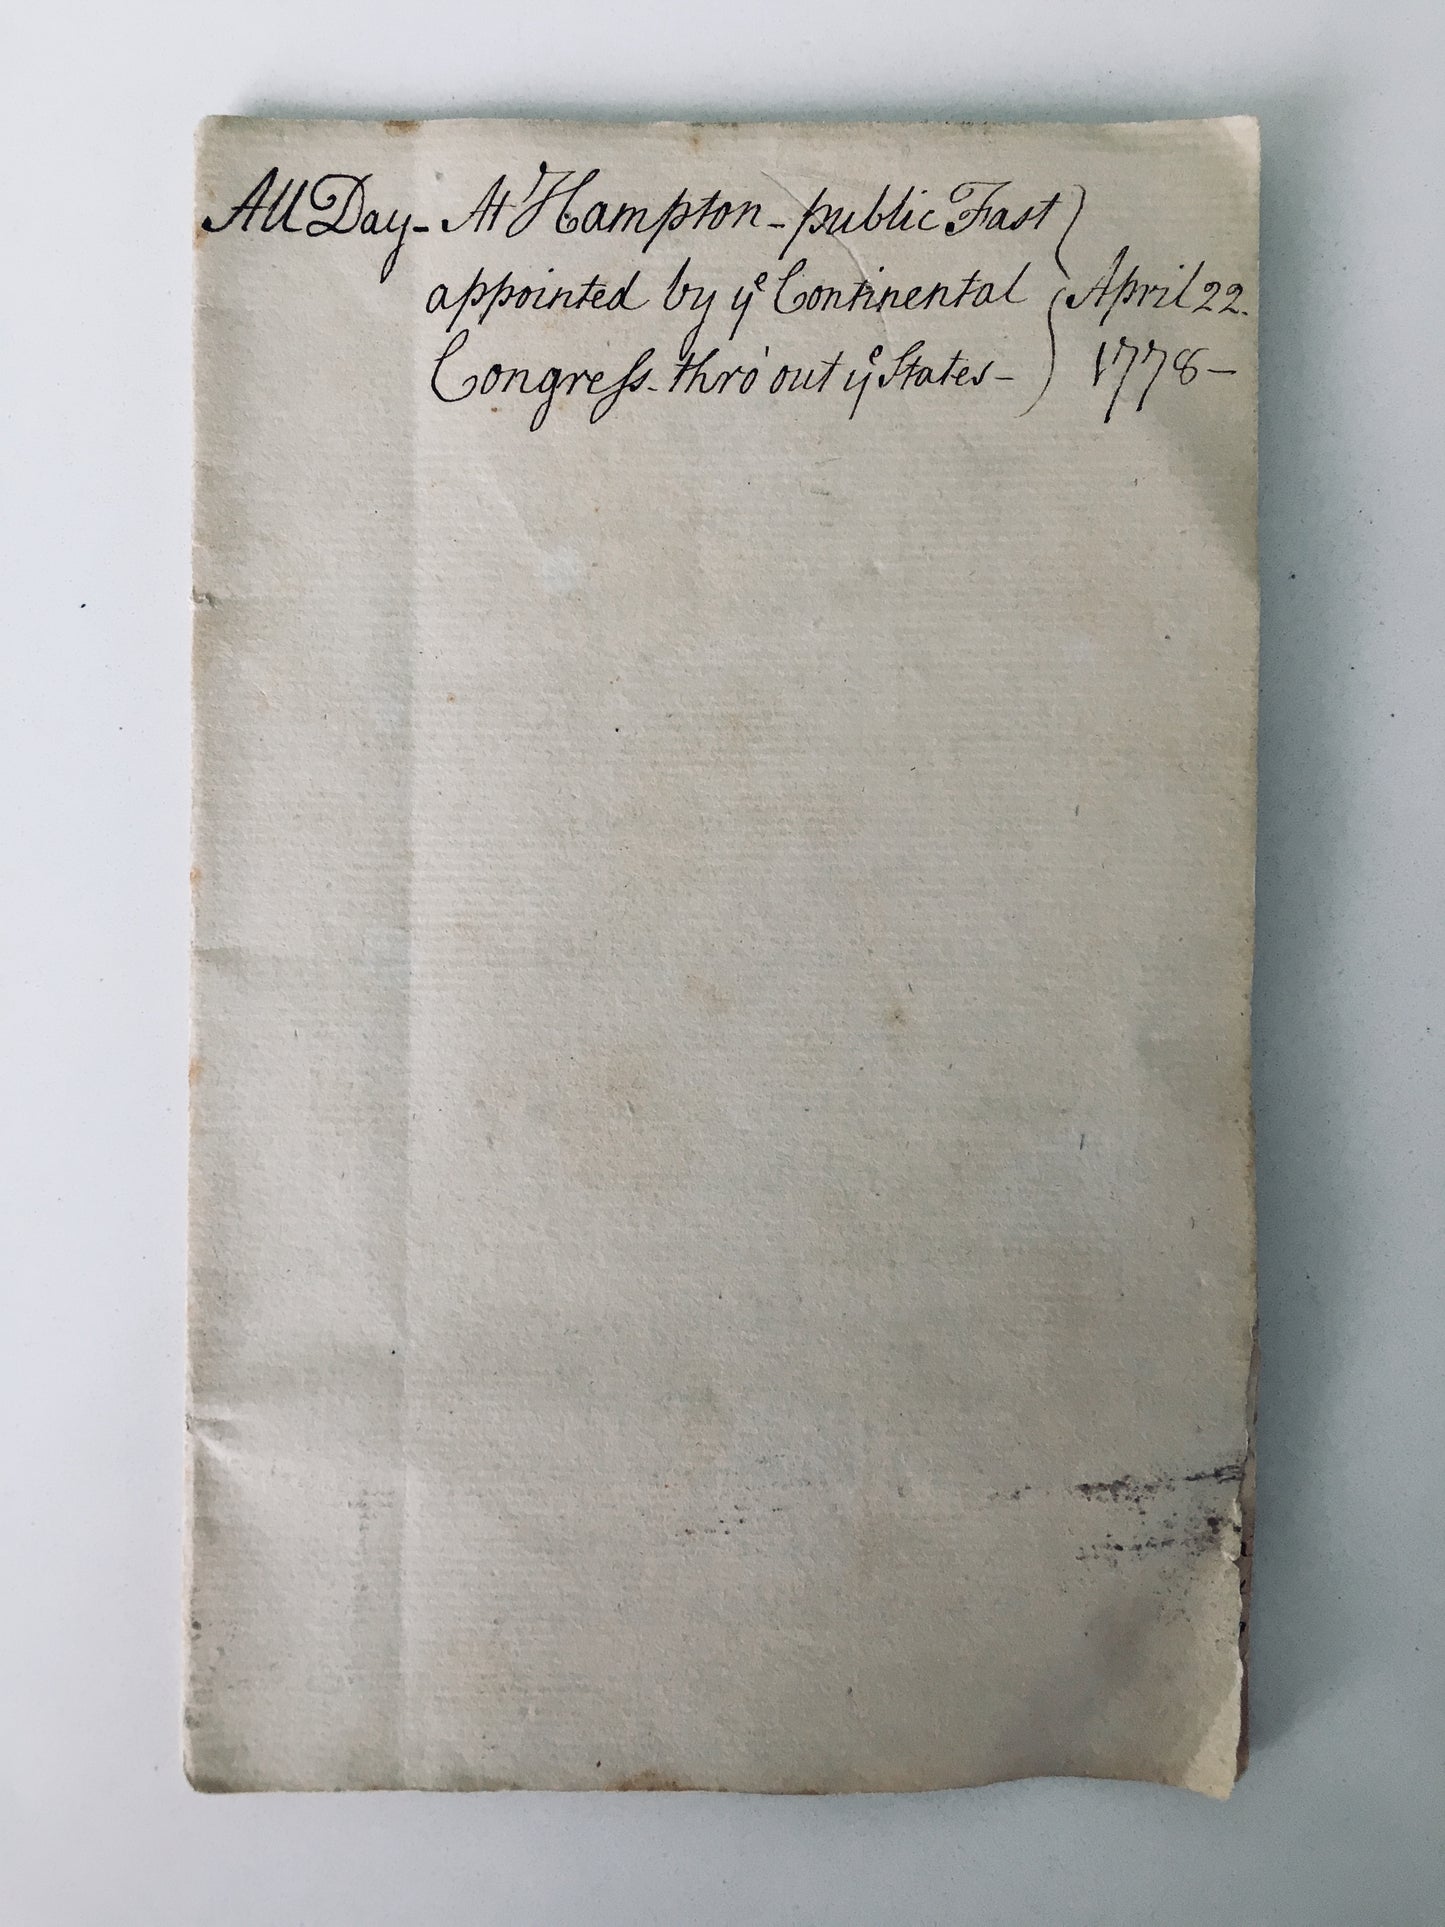 All Day - At Hampton - public Fast
appointed by yᵉ Continental
Congreſs - thro' out yᵉ States -
April 22.
1778 -